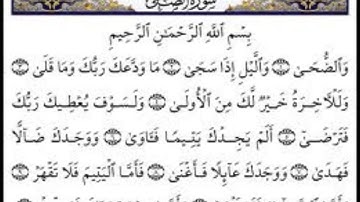 سُورَةُ الضُّحَىٰ
بِسْمِ ٱللَّهِ ٱلرَّحْمَـٰنِ ٱلرَّحِيمِ
وَٱلضُّحَىٰ ۝١ وَٱلَّيْلِ إِذَا سَجَىٰ ۝٢ مَا وَدَّعَكَ رَبُّكَ وَمَا قَلَىٰ ۝٣
وَلَلْـَٔاخِرَةُ خَيْرٌ لَّكَ مِنَ ٱلْأُولَىٰ ۝٤ وَلَسَوْفَ يُعْطِيكَ رَبُّكَ
فَتَرْضَىٰٓ ۝٥ أَلَمْ يَجِدْكَ يَتِيمًا فَـَٔاوَىٰ ۝٦ وَوَجَدَكَ ضَآلًّا
فَهَدَىٰ ۝٧ وَوَجَدَكَ عَآئِلًا فَأَغْنَىٰ ۝٨ فَأَمَّا ٱلْيَتِيمَ فَلَا تَقْهَرْ ۝٩